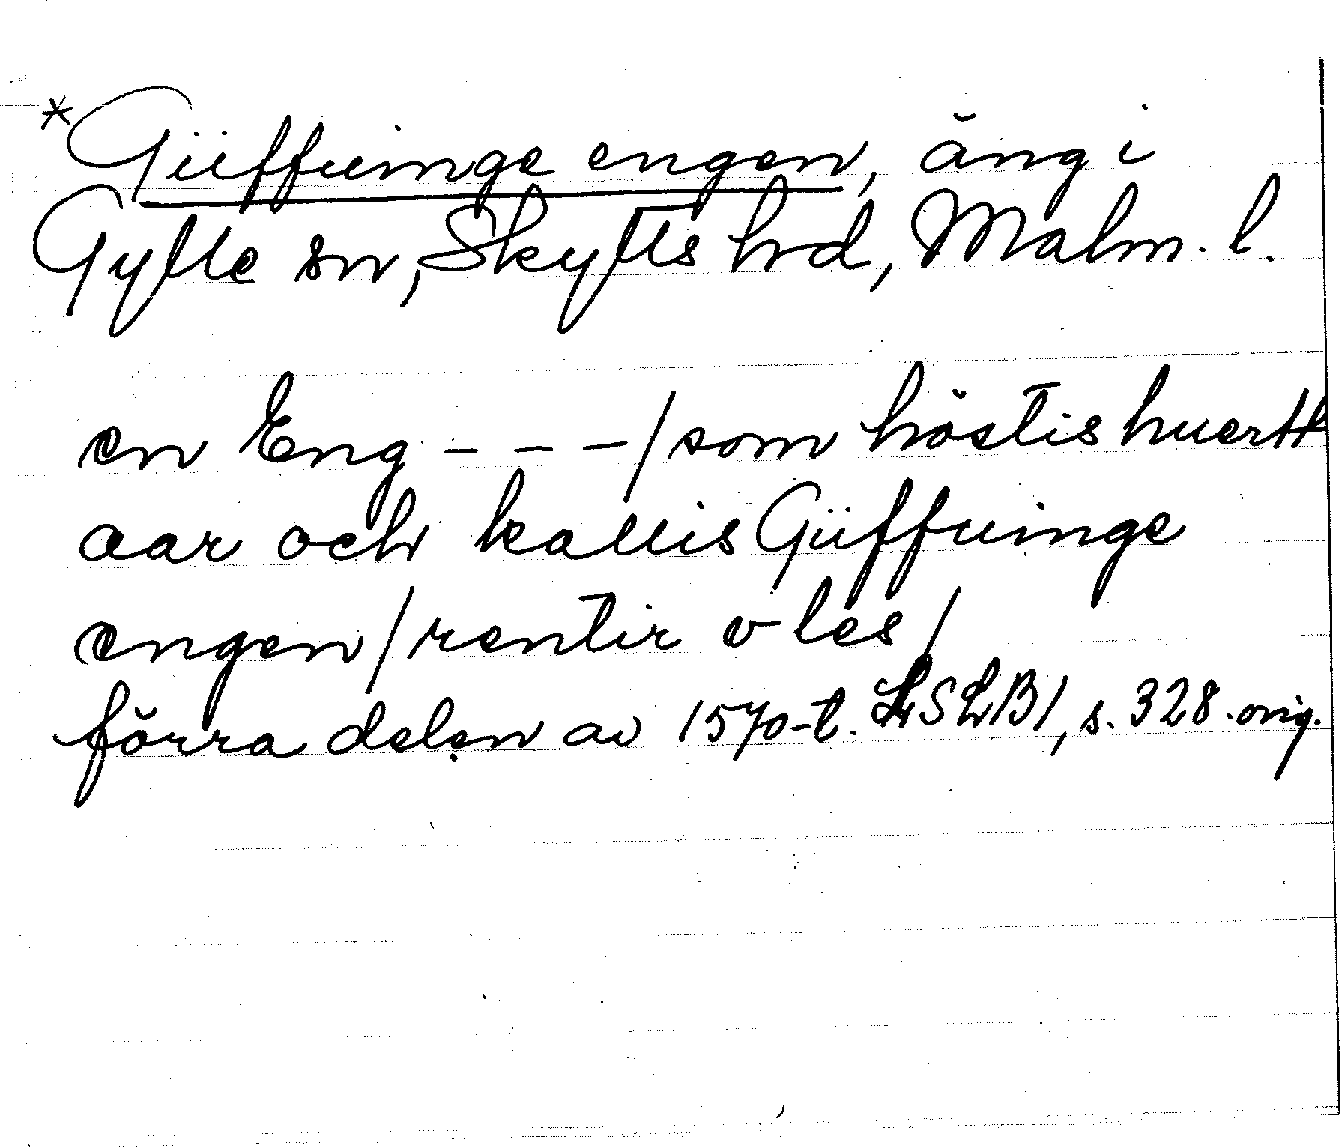 *Güffuinge engen, äng i
Gylle sn, Skytts hrd, Malm. l.
en Eng - - - / som höstis huertt
aar och kallis Güffuinge
engen / rentir v les /
förra delen av 1570-t. LSLB1, s. 328. orig.